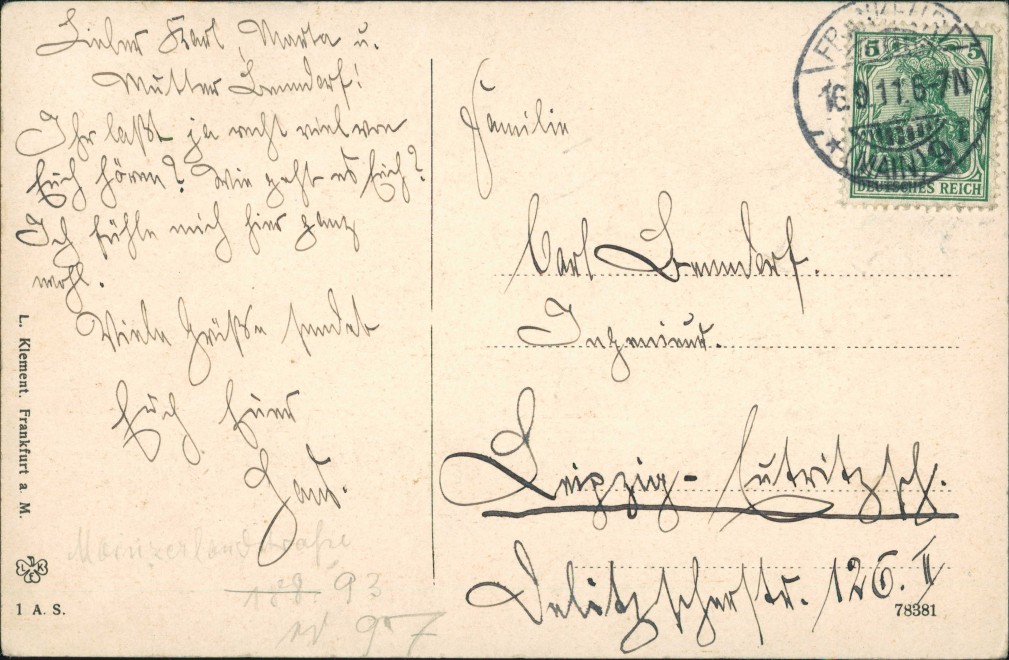 Lieber Karl, Marta u.
Mutter Benndorf!
Ihr laßt ja recht viel von
Euch hören? Wie geht es Euch?
Ich fühle mich hier ganz
wohl.
Viele Grüße sendet
Euch Euer
Hans.
Mainzerlandstraße
188. 93
907
L. Klement. Frankfurt a. M.
1 A. S.
FRANKFURT
16.9.11.6-7N
* (MAIN) 9
5 5
DEUTSCHES REICH
Familie
Carl Benndorf.
Ingenieur.
Leipzig-Eutritzsch.
Delitzscherstr. 126. II
78381